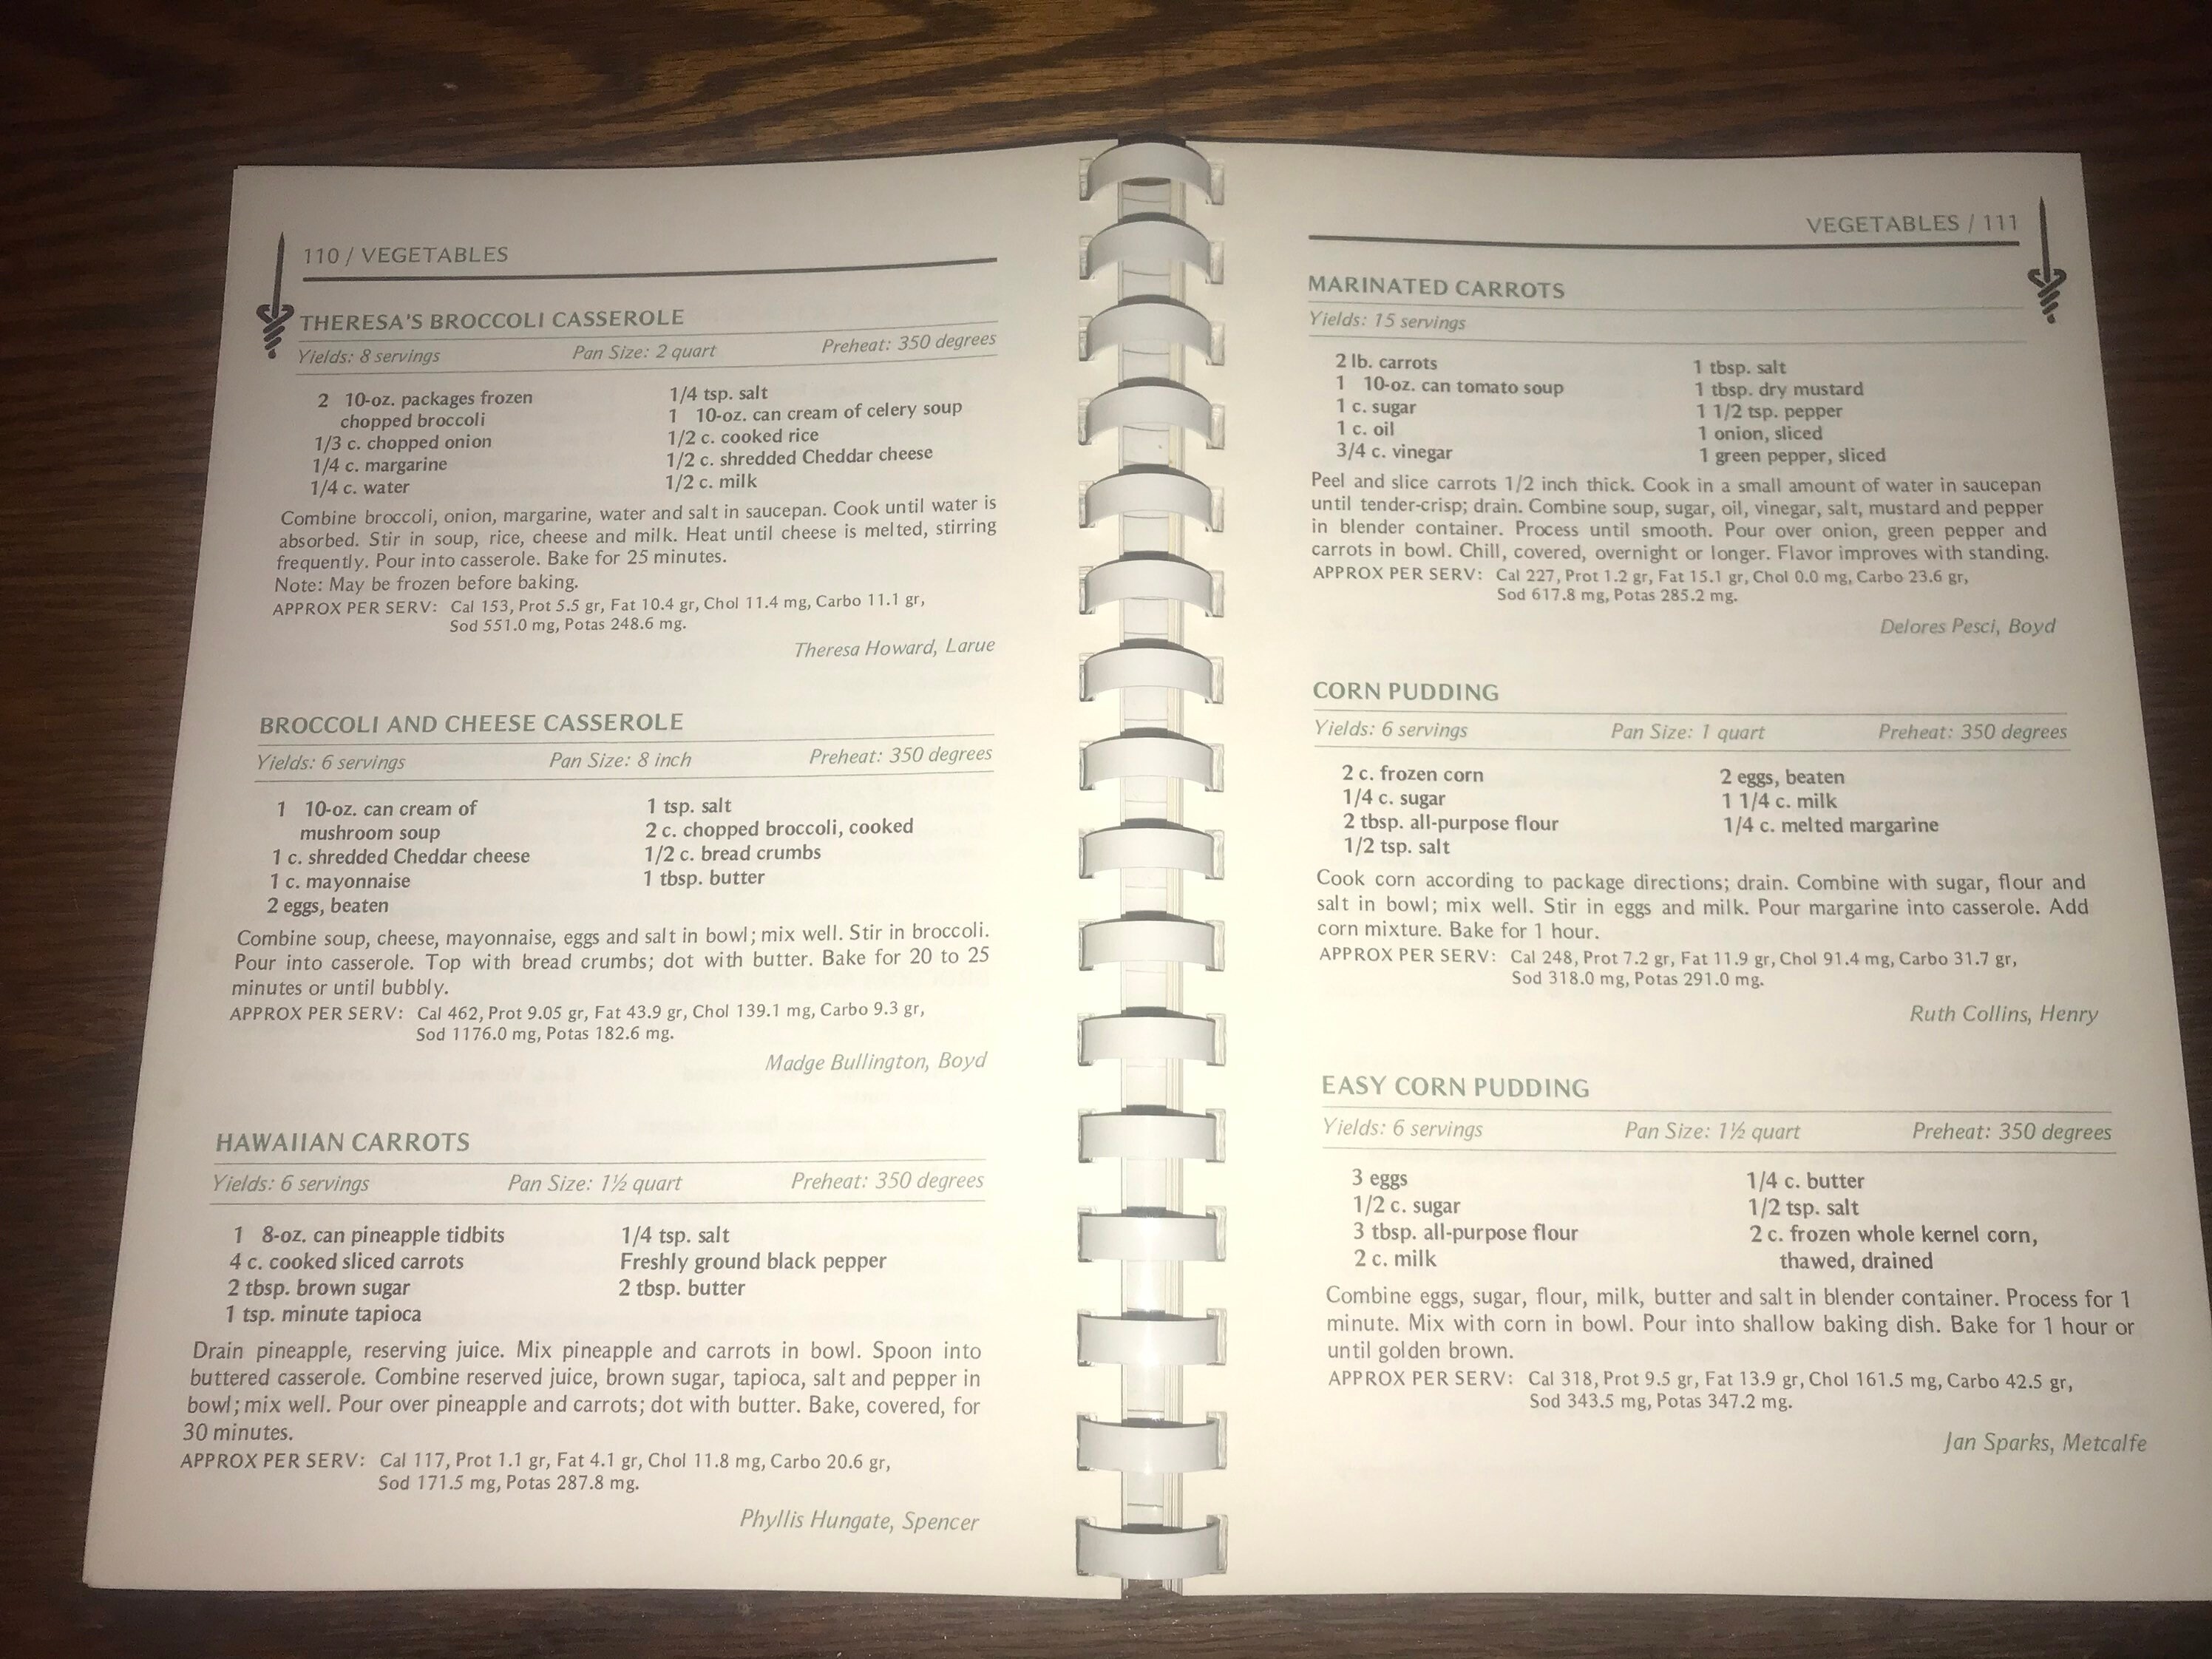 110 / VEGETABLES
THERESA'S BROCCOLI CASSEROLE
Yields: 8 servings Pan Size: 2 quart Preheat: 350 degrees
2 10-oz. packages frozen
chopped broccoli
1/3 c. chopped onion
1/4 c. margarine
1/4 c. water
1/4 tsp. salt
1 10-oz. can cream of celery soup
1/2 c. cooked rice
1/2 c. shredded Cheddar cheese
1/2 c. milk
Combine broccoli, onion, margarine, water and salt in saucepan. Cook until water is
absorbed. Stir in soup, rice, cheese and milk. Heat until cheese is melted, stirring
frequently. Pour into casserole. Bake for 25 minutes.
Note: May be frozen before baking.
APPROX PER SERV: Cal 153, Prot 5.5 gr, Fat 10.4 gr, Chol 11.4 mg, Carbo 11.1 gr,
Sod 551.0 mg, Potas 248.6 mg.
Theresa Howard, Larue
BROCCOLI AND CHEESE CASSEROLE
Yields: 6 servings Pan Size: 8 inch Preheat: 350 degrees
1 10-oz. can cream of
mushroom soup
1 c. shredded Cheddar cheese
1 c. mayonnaise
2 eggs, beaten
1 tsp. salt
2 c. chopped broccoli, cooked
1/2 c. bread crumbs
1 tbsp. butter
Combine soup, cheese, mayonnaise, eggs and salt in bowl; mix well. Stir in broccoli.
Pour into casserole. Top with bread crumbs; dot with butter. Bake for 20 to 25
minutes or until bubbly.
APPROX PER SERV: Cal 462, Prot 9.05 gr, Fat 43.9 gr, Chol 139.1 mg, Carbo 9.3 gr,
Sod 1176.0 mg, Potas 182.6 mg.
Madge Bullington, Boyd
HAWAIIAN CARROTS
Yields: 6 servings Pan Size: 1½ quart Preheat: 350 degrees
1 8-oz. can pineapple tidbits
4 c. cooked sliced carrots
2 tbsp. brown sugar
1 tsp. minute tapioca
1/4 tsp. salt
Freshly ground black pepper
2 tbsp. butter
Drain pineapple, reserving juice. Mix pineapple and carrots in bowl. Spoon into
buttered casserole. Combine reserved juice, brown sugar, tapioca, salt and pepper in
bowl; mix well. Pour over pineapple and carrots; dot with butter. Bake, covered, for
30 minutes.
APPROX PER SERV: Cal 117, Prot 1.1 gr, Fat 4.1 gr, Chol 11.8 mg, Carbo 20.6 gr,
Sod 171.5 mg, Potas 287.8 mg.
Phyllis Hungate, Spencer
VEGETABLES / 111
MARINATED CARROTS
Yields: 15 servings
2 lb. carrots
1 10-oz. can tomato soup
1 c. sugar
1 c. oil
3/4 c. vinegar
1 tbsp. salt
1 tbsp. dry mustard
1 1/2 tsp. pepper
1 onion, sliced
1 green pepper, sliced
Peel and slice carrots 1/2 inch thick. Cook in a small amount of water in saucepan
until tender-crisp; drain. Combine soup, sugar, oil, vinegar, salt, mustard and pepper
in blender container. Process until smooth. Pour over onion, green pepper and
carrots in bowl. Chill, covered, overnight or longer. Flavor improves with standing.
APPROX PER SERV: Cal 227, Prot 1.2 gr, Fat 15.1 gr, Chol 0.0 mg, Carbo 23.6 gr,
Sod 617.8 mg, Potas 285.2 mg.
Delores Pesci, Boyd
CORN PUDDING
Yields: 6 servings Pan Size: 1 quart Preheat: 350 degrees
2 c. frozen corn
1/4 c. sugar
2 tbsp. all-purpose flour
1/2 tsp. salt
2 eggs, beaten
1 1/4 c. milk
1/4 c. melted margarine
Cook corn according to package directions; drain. Combine with sugar, flour and
salt in bowl; mix well. Stir in eggs and milk. Pour margarine into casserole. Add
corn mixture. Bake for 1 hour.
APPROX PER SERV: Cal 248, Prot 7.2 gr, Fat 11.9 gr, Chol 91.4 mg, Carbo 31.7 gr,
Sod 318.0 mg, Potas 291.0 mg.
Ruth Collins, Henry
EASY CORN PUDDING
Yields: 6 servings Pan Size: 1½ quart Preheat: 350 degrees
3 eggs
1/2 c. sugar
3 tbsp. all-purpose flour
2 c. milk
1/4 c. butter
1/2 tsp. salt
2 c. frozen whole kernel corn,
thawed, drained
Combine eggs, sugar, flour, milk, butter and salt in blender container. Process for 1
minute. Mix with corn in bowl. Pour into shallow baking dish. Bake for 1 hour or
until golden brown.
APPROX PER SERV: Cal 318, Prot 9.5 gr, Fat 13.9 gr, Chol 161.5 mg, Carbo 42.5 gr,
Sod 343.5 mg, Potas 347.2 mg.
Jan Sparks, Metcalfe